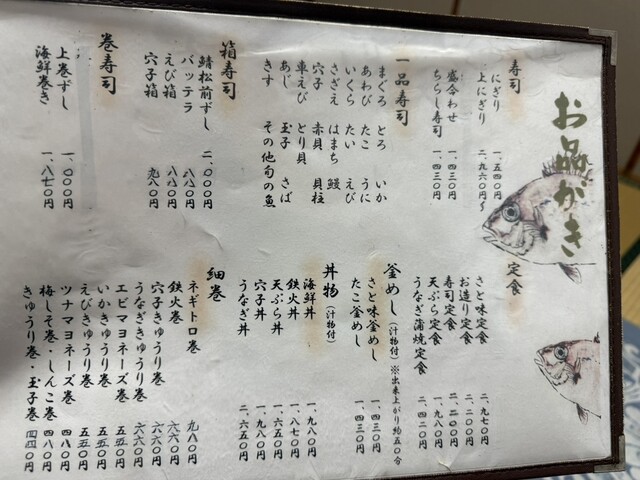 お品がき
寿司
にぎり 一、五四〇円
上にぎり 二、九六〇円〜
盛合わせ 一、四三〇円
ちらし寿司 一、四三〇円
一品寿司
まぐろ とろ いか
あわび たこ うに
いくら たい えび
さざえ はまち 鰻
穴子 赤貝 貝柱
車えび とり貝
あじ 玉子 さば
きす その他旬の魚
箱寿司
鯖松前ずし 二、〇〇〇円
バッテラ 八八〇円
えび箱 八八〇円
穴子箱 九八〇円
巻寿司
上巻ずし 一、〇〇〇円
海鮮巻き 一、八七〇円
定食
さと味定食 二、九七〇円
お造り定食 二、二〇〇円
寿司定食 二、二〇〇円
天ぷら定食 一、九八〇円
うなぎ蒲焼定食 二、四二〇円
釜めし(汁物付)※出来上がり約五〇分
さと味釜めし 一、四三〇円
たこ釜めし 一、四三〇円
丼物(汁物付)
海鮮丼 一、九八〇円
鉄火丼 一、八七〇円
天ぷら丼 一、六五〇円
穴子丼 一、九八〇円
うなぎ丼 二、六五〇円
細巻
ネギトロ巻 九八〇円
鉄火巻 六六〇円
穴子きゅうり巻 六六〇円
うなぎきゅうり巻 六六〇円
エビマヨネーズ巻 五五〇円
いかきゅうり巻 五五〇円
えびきゅうり巻 五五〇円
ツナマヨネーズ巻 四八〇円
梅しそ巻・しんこ巻 四八〇円
きゅうり巻・玉子巻 四四〇円